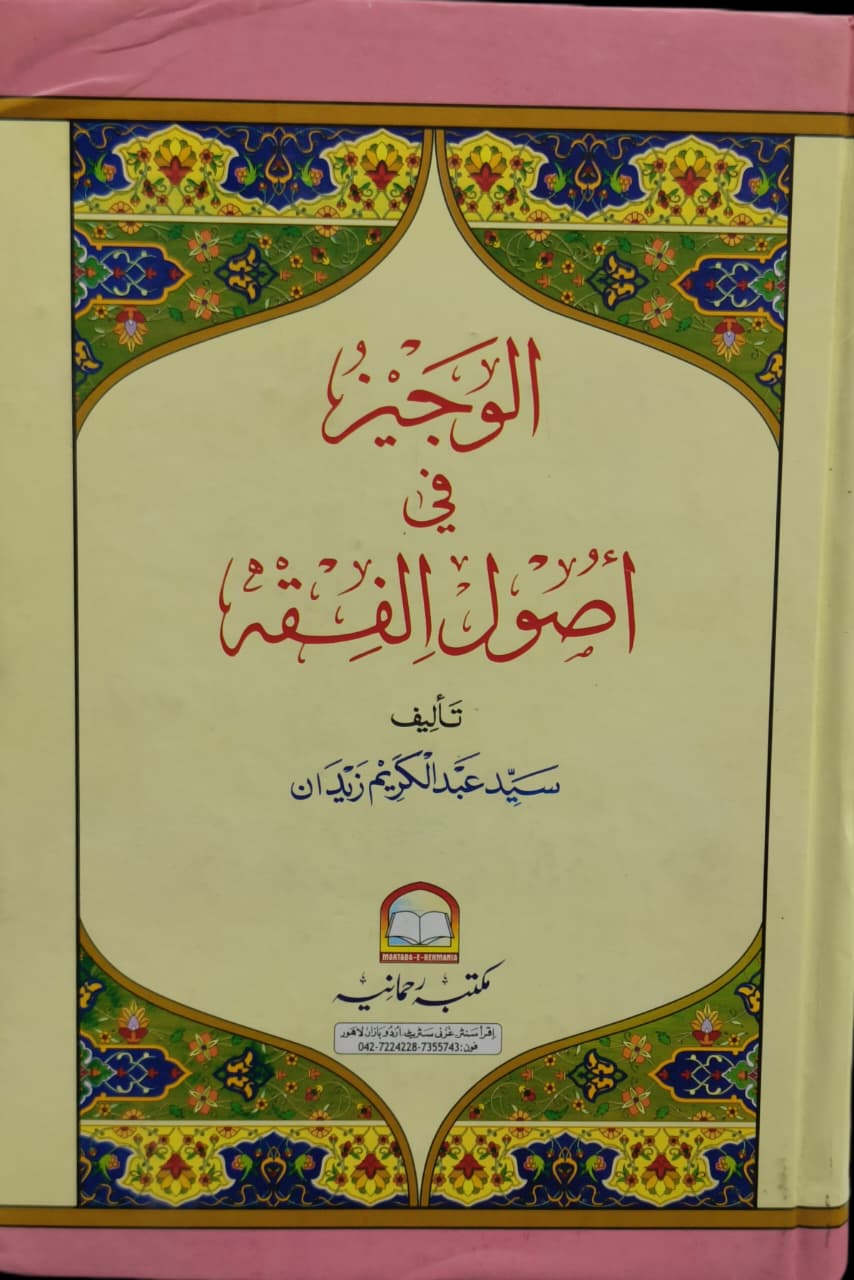 الوَجَيْزُ
في
أُصُوْلِ الفِقْهِ
تَألِيف
سَيِّد عَبْدالْكَرِيْم زَيْدَان
MAKTABA-E-REHMANIA
مکتبہ رحمانیہ
اِقرأ سَنتر غَزنی سَٹریٹ اُردُو بازار لاہور
فون:042-7224228-7355743